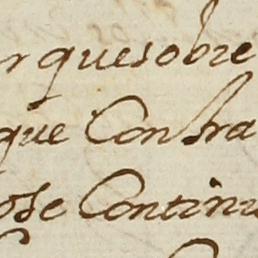 r que sobre
que Contra
ose Continu